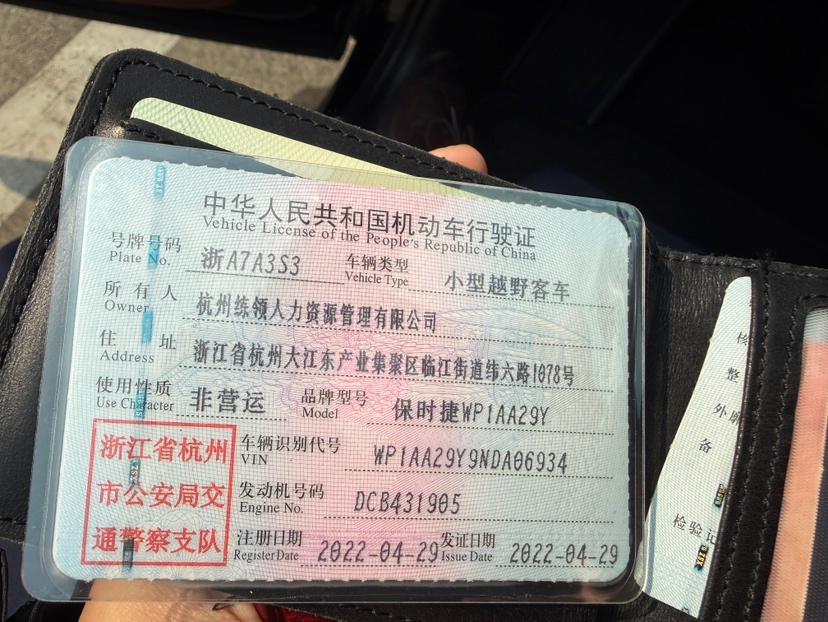 中华人民共和国机动车行驶证
Vehicle License of the People's Republic of China
号牌号码 浙A7A3S3 车辆类型 小型越野客车
Plate No. Vehicle Type
所有人 杭州练领人力资源管理有限公司
Owner
住址 浙江省杭州大江东产业集聚区临江街道纬六路1078号
Address
使用性质 非营运 品牌型号 保时捷WP1AA29Y
Use Character Model
浙江省杭州
市公安局交
通警察支队
车辆识别代号 WP1AA29Y9NDA06934
VIN
发动机号码 DCB431905
Engine No.
注册日期 2022-04-29 发证日期 2022-04-29
Register Date Issue Date
核
整
外廓
备
检验记